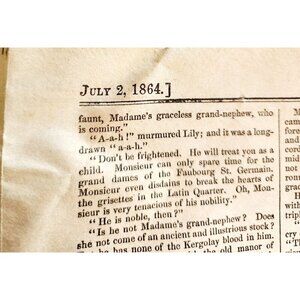 JULY 2, 1864.]
faunt, Madame's graceless grand-nephew, who
is coming."
"A-a-h!" murmured Lily; and it was a long-
drawn "a-a-h."
"Don't be frightened. He will treat you as a
child. Monsieur can only spare time for the
grand dames of the Faubourg St. Germain.
Monsieur even disdains to break the hearts of
the grisettes in the Latin Quarter. Oh, Mon-
sieur is very tenacious of his nobility."
"He is noble, then?"
"Is he not Madame's grand-nephew? Does
she not come of an ancient and illustrious stock?
he has none of the Kergolay blood in him.
the old manor of